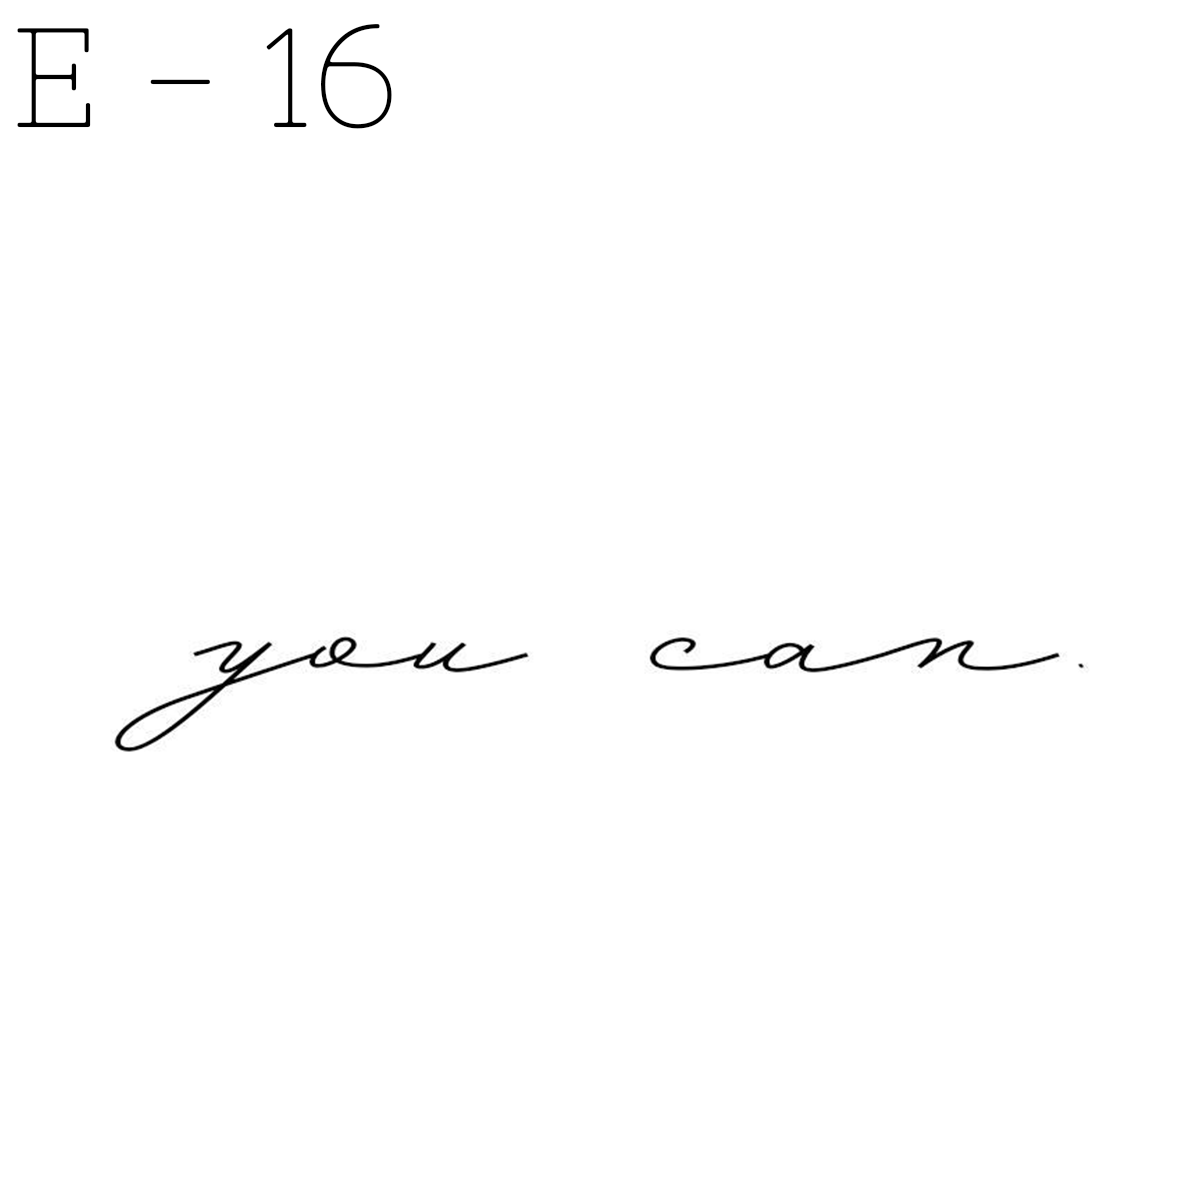 E - 16
you can.